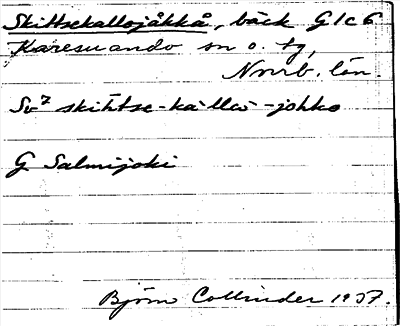 Skittsekallojåkkå, bäck G1c6
Karesuando sn o. tg,
Norrb. län.
Sv⁷ skihtse-kallo-johko
G Salmijoki
Björn Collinder 1937.